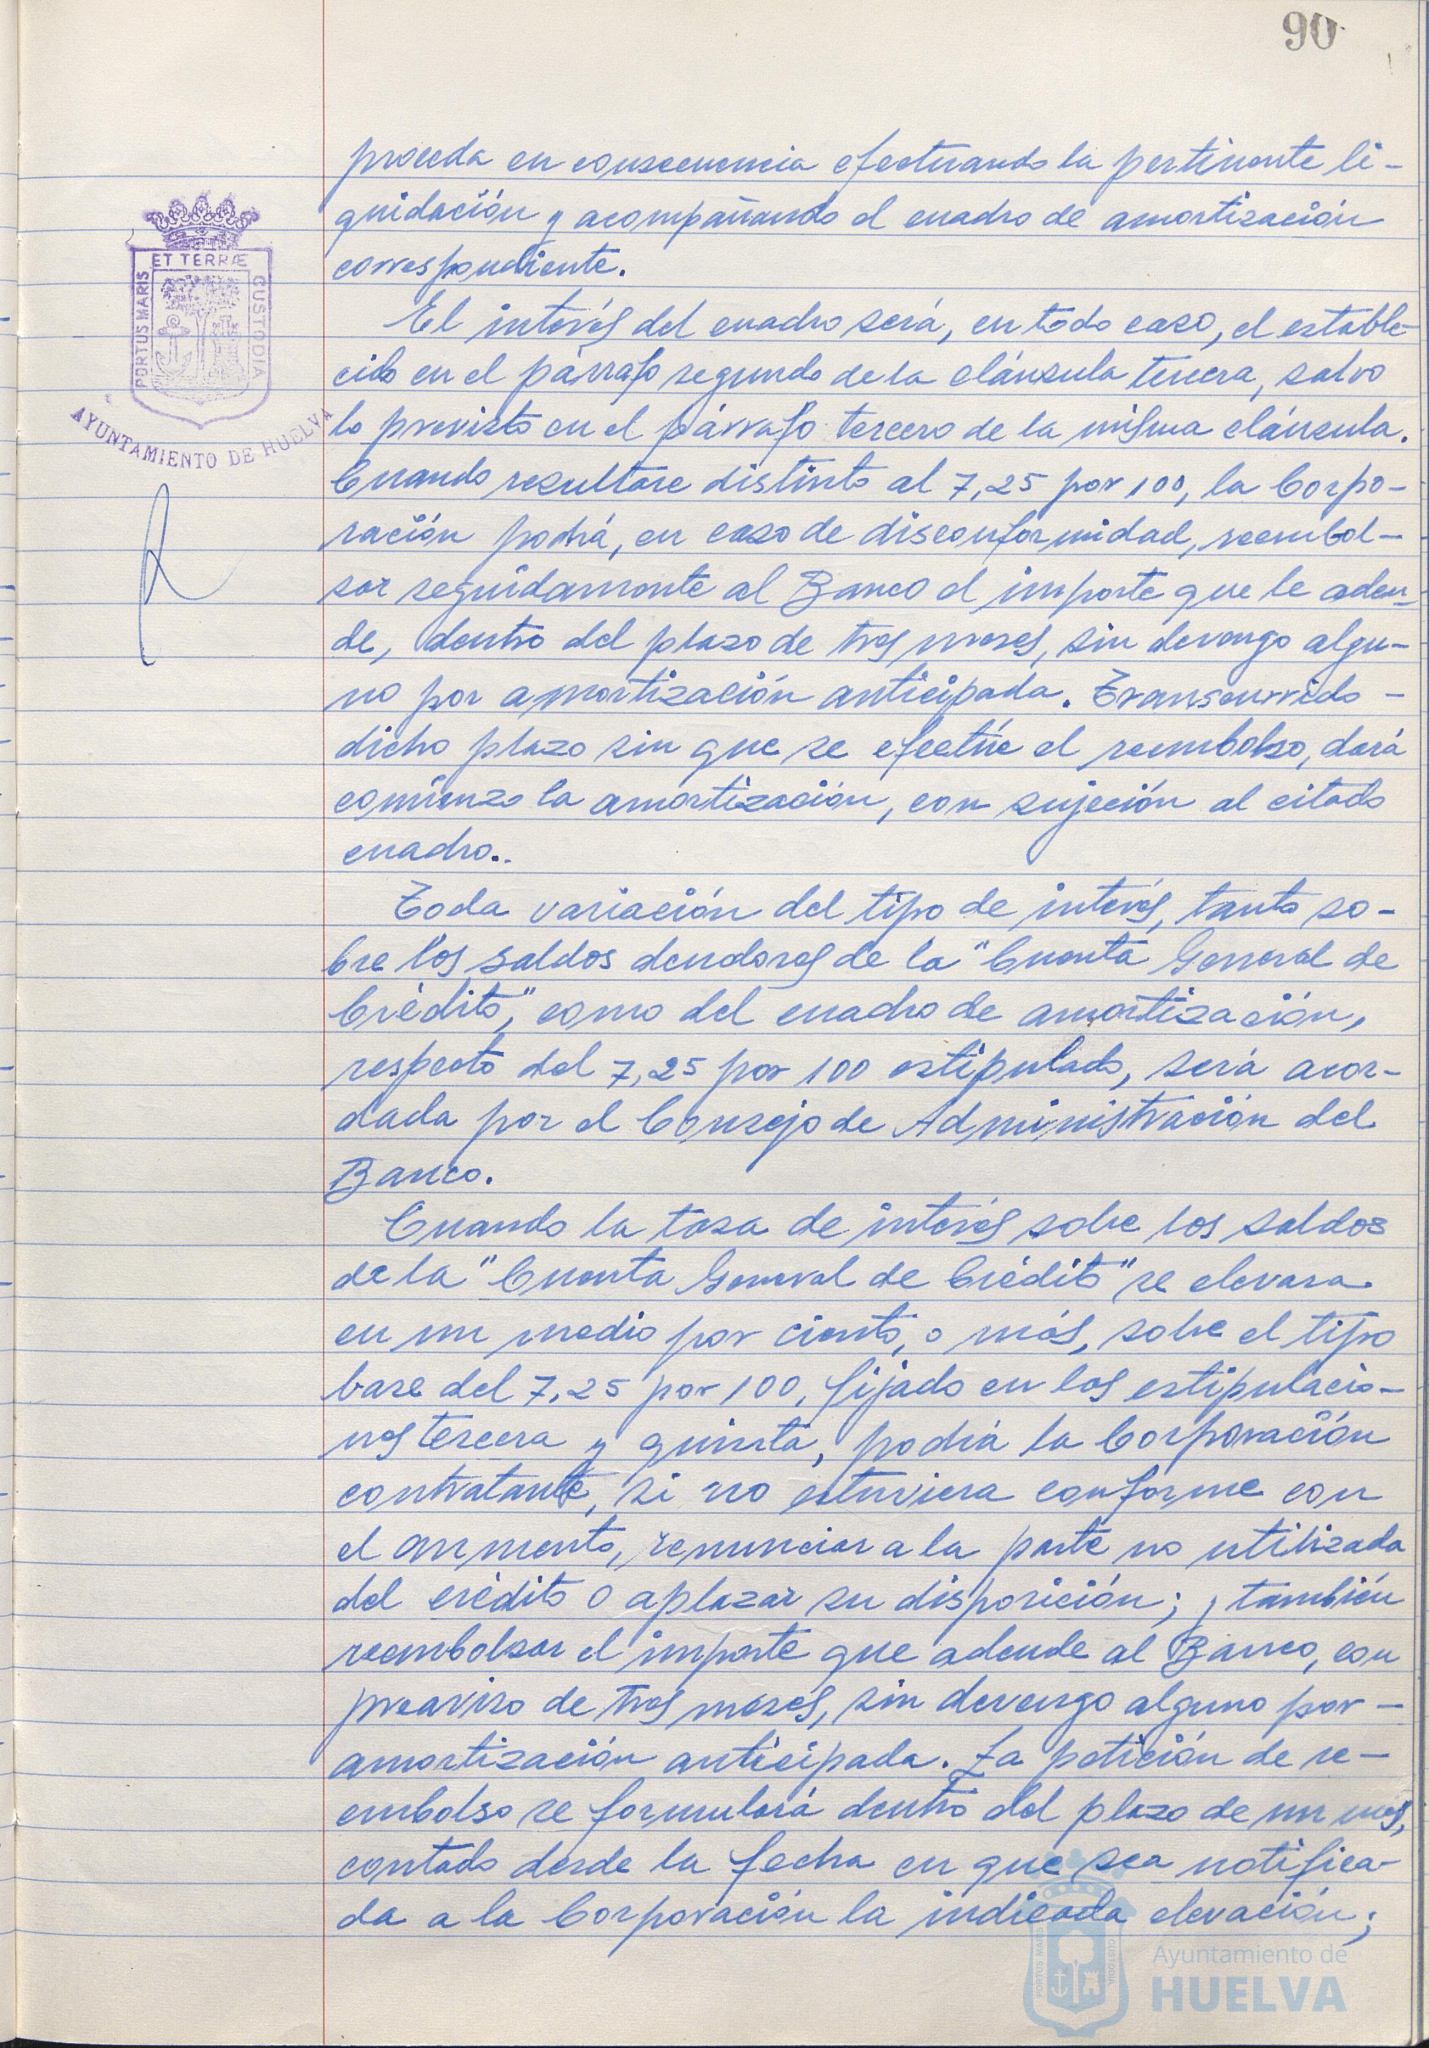 90
proceda en consecuencia efectuando la pertinente li-
quidación y acompañando el cuadro de amortización
correspondiente.
El interés del cuadro será, en todo caso, el estable-
cido en el párrafo segundo de la cláusula tercera, salvo
lo previsto en el párrafo tercero de la misma cláusula.
Cuando resultare distinto al 7,25 por 100, la Corpo-
ración podrá, en caso de disconformidad, reembol-
sar seguidamente al Banco el importe que le adeu-
de, dentro del plazo de tres meses, sin devengo algu-
no por amortización anticipada. Transcurrido -
dicho plazo sin que se efectúe el reembolso, dará
comienzo la amortización, con sujeción al citado
cuadro..
Toda variación del tipo de interés, tanto so-
bre los saldos deudores de la "Cuenta General de
Crédito", como del cuadro de amortización,
respecto del 7,25 por 100 estipulado, será acor-
dada por el Consejo de Administración del
Banco.
Cuando la tasa de interés sobre los saldos
de la "Cuenta General de Crédito" se elevara
en un medio por ciento, o más, sobre el tipo
base del 7,25 por 100, fijado en las estipulacio-
nes tercera y quinta, podrá la Corporación
contratante, si no estuviera conforme con
el aumento, renunciar a la parte no utilizada
del crédito o aplazar su disposición; y también
reembolsar el importe que adeude al Banco, con
preaviso de tres meses, sin devengo alguno por -
amortización anticipada. La petición de re-
embolso se formulará dentro del plazo de un mes,
contado desde la fecha en que sea notifica-
da a la Corporación la indicada elevación;
PORTUS MARIS
ET TERRÆ
CUSTODIA
AYUNTAMIENTO DE HUELVA
PORTUS MARIS
CUSTODIA
Ayuntamiento de
HUELVA